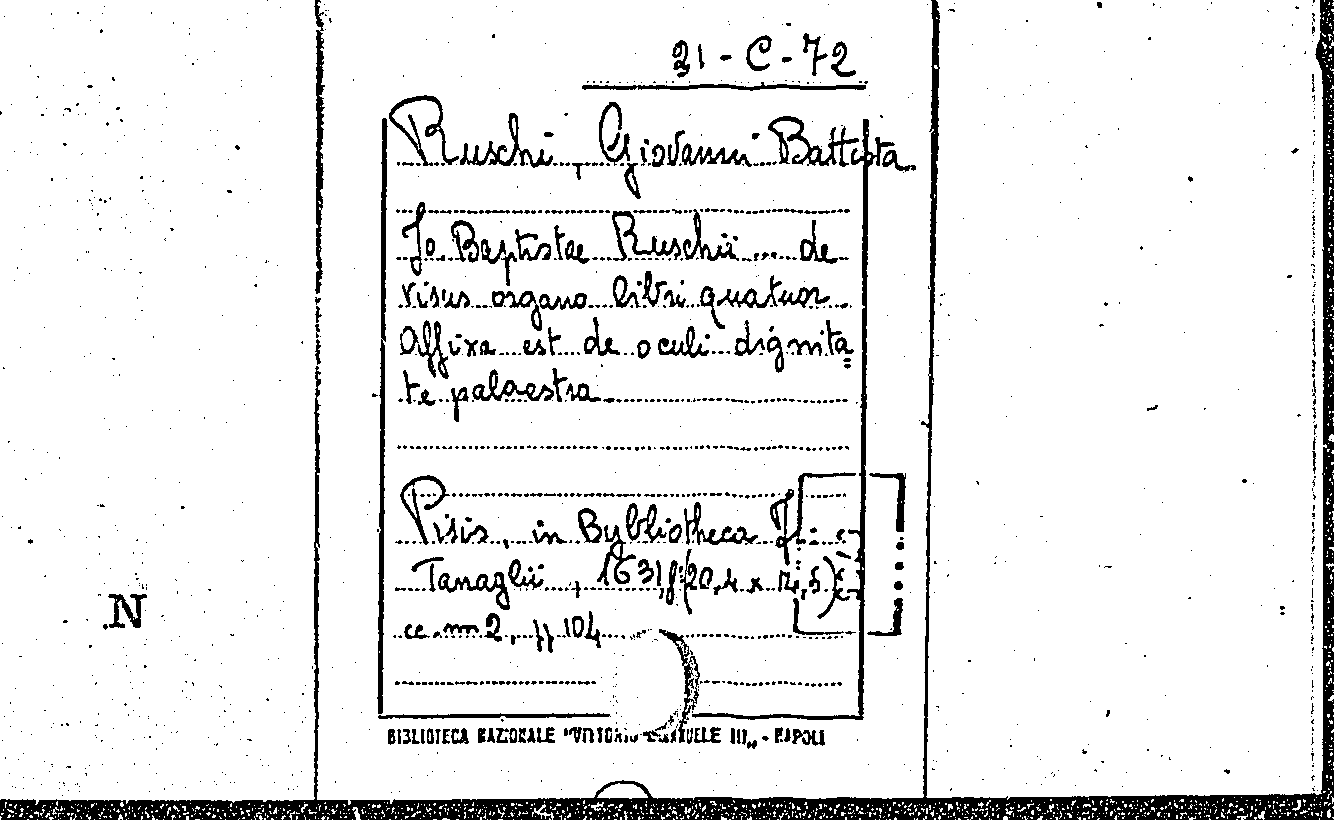 21-C-72
Ruschi, Giovanni Battista
Jo. Baptistae Ruschii ... de
visus organo libri quatuor.
Affixa est de oculi dignita=
te palaestra.
Pisis, in Bybliotheca
Tanaglii, 1631, (20,4 x
cc.nn 2, pp 104
N
BIBLIOTECA NAZIONALE "VITTORIO EMANUELE III„ - NAPOLI